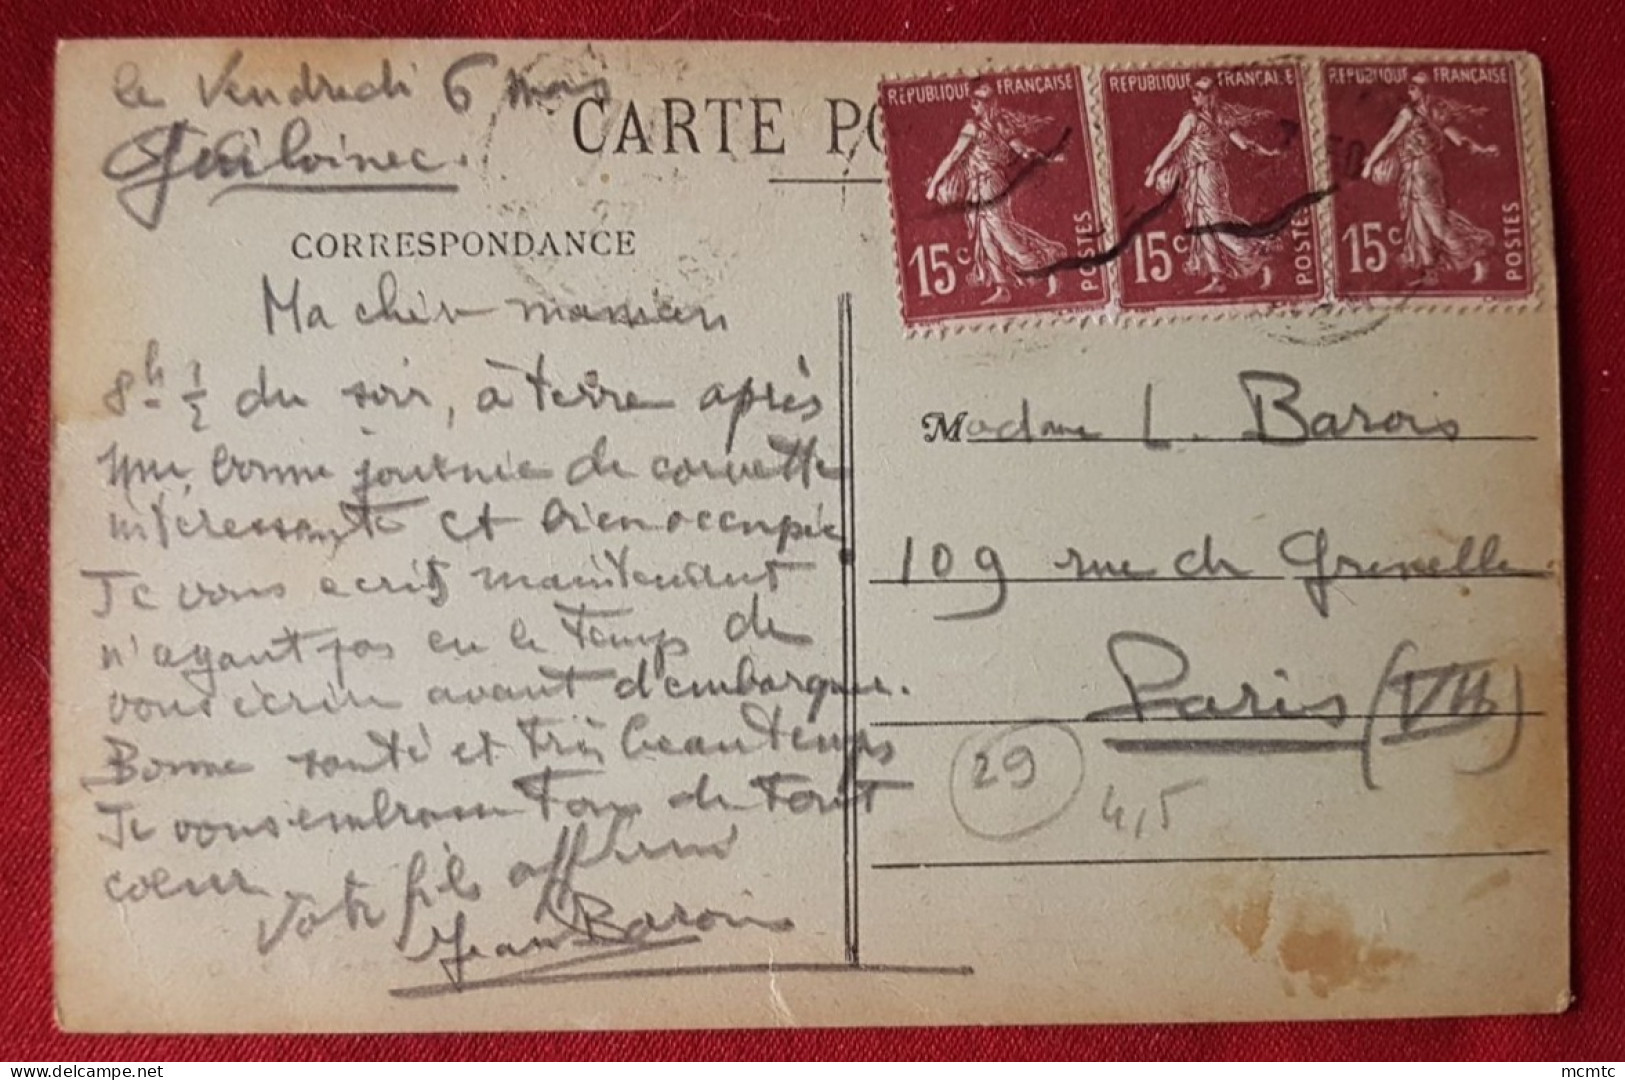 le Vendredi 6 mars
Guilvinec.
CARTE PO
CORRESPONDANCE
Ma chère maman
8h 1/2 du soir, à terre après
une bonne journée de corvette
intéressante et bien occupée
Je vous écris maintenant
n'ayant pas eu le temps de
vous écrire avant d'embarquer.
Bonne santé et très beau temps
Je vous embrasse tous de tout
coeur
Votre fils
Jean Barois
REPUBLIQUE FRANÇAISE
15c POSTES
REPUBLIQUE FRANÇAISE
15c POSTES
REPUBLIQUE FRANÇAISE
15c POSTES
Madame L. Barois
109 rue de Grenelle
Paris (VII)
29
4,5
mcmtc
delcampe.net